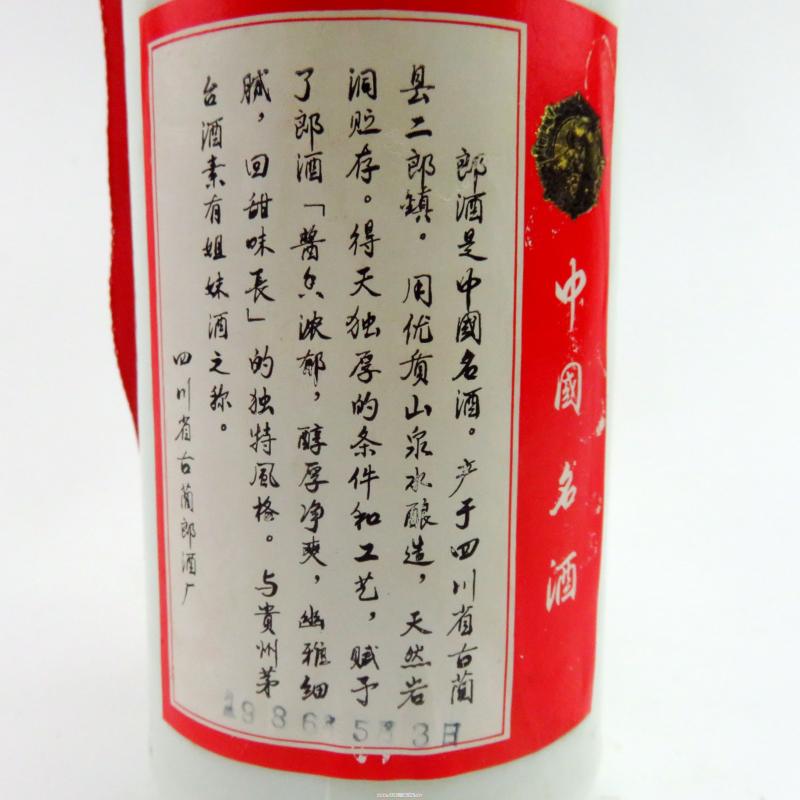 郎酒是中國名酒。产于四川省古蔺
县二郎鎮。用优质山泉水酿造，天然岩
洞贮存。得天独厚的条件和工艺，赋予
了郎酒「醬香浓郁，醇厚净爽，幽雅细
腻，回甜味長」的独特风格。与貴州茅
台酒素有姐妹酒之称。
四川省古蔺郎酒厂
1986年5月3日
中國名酒